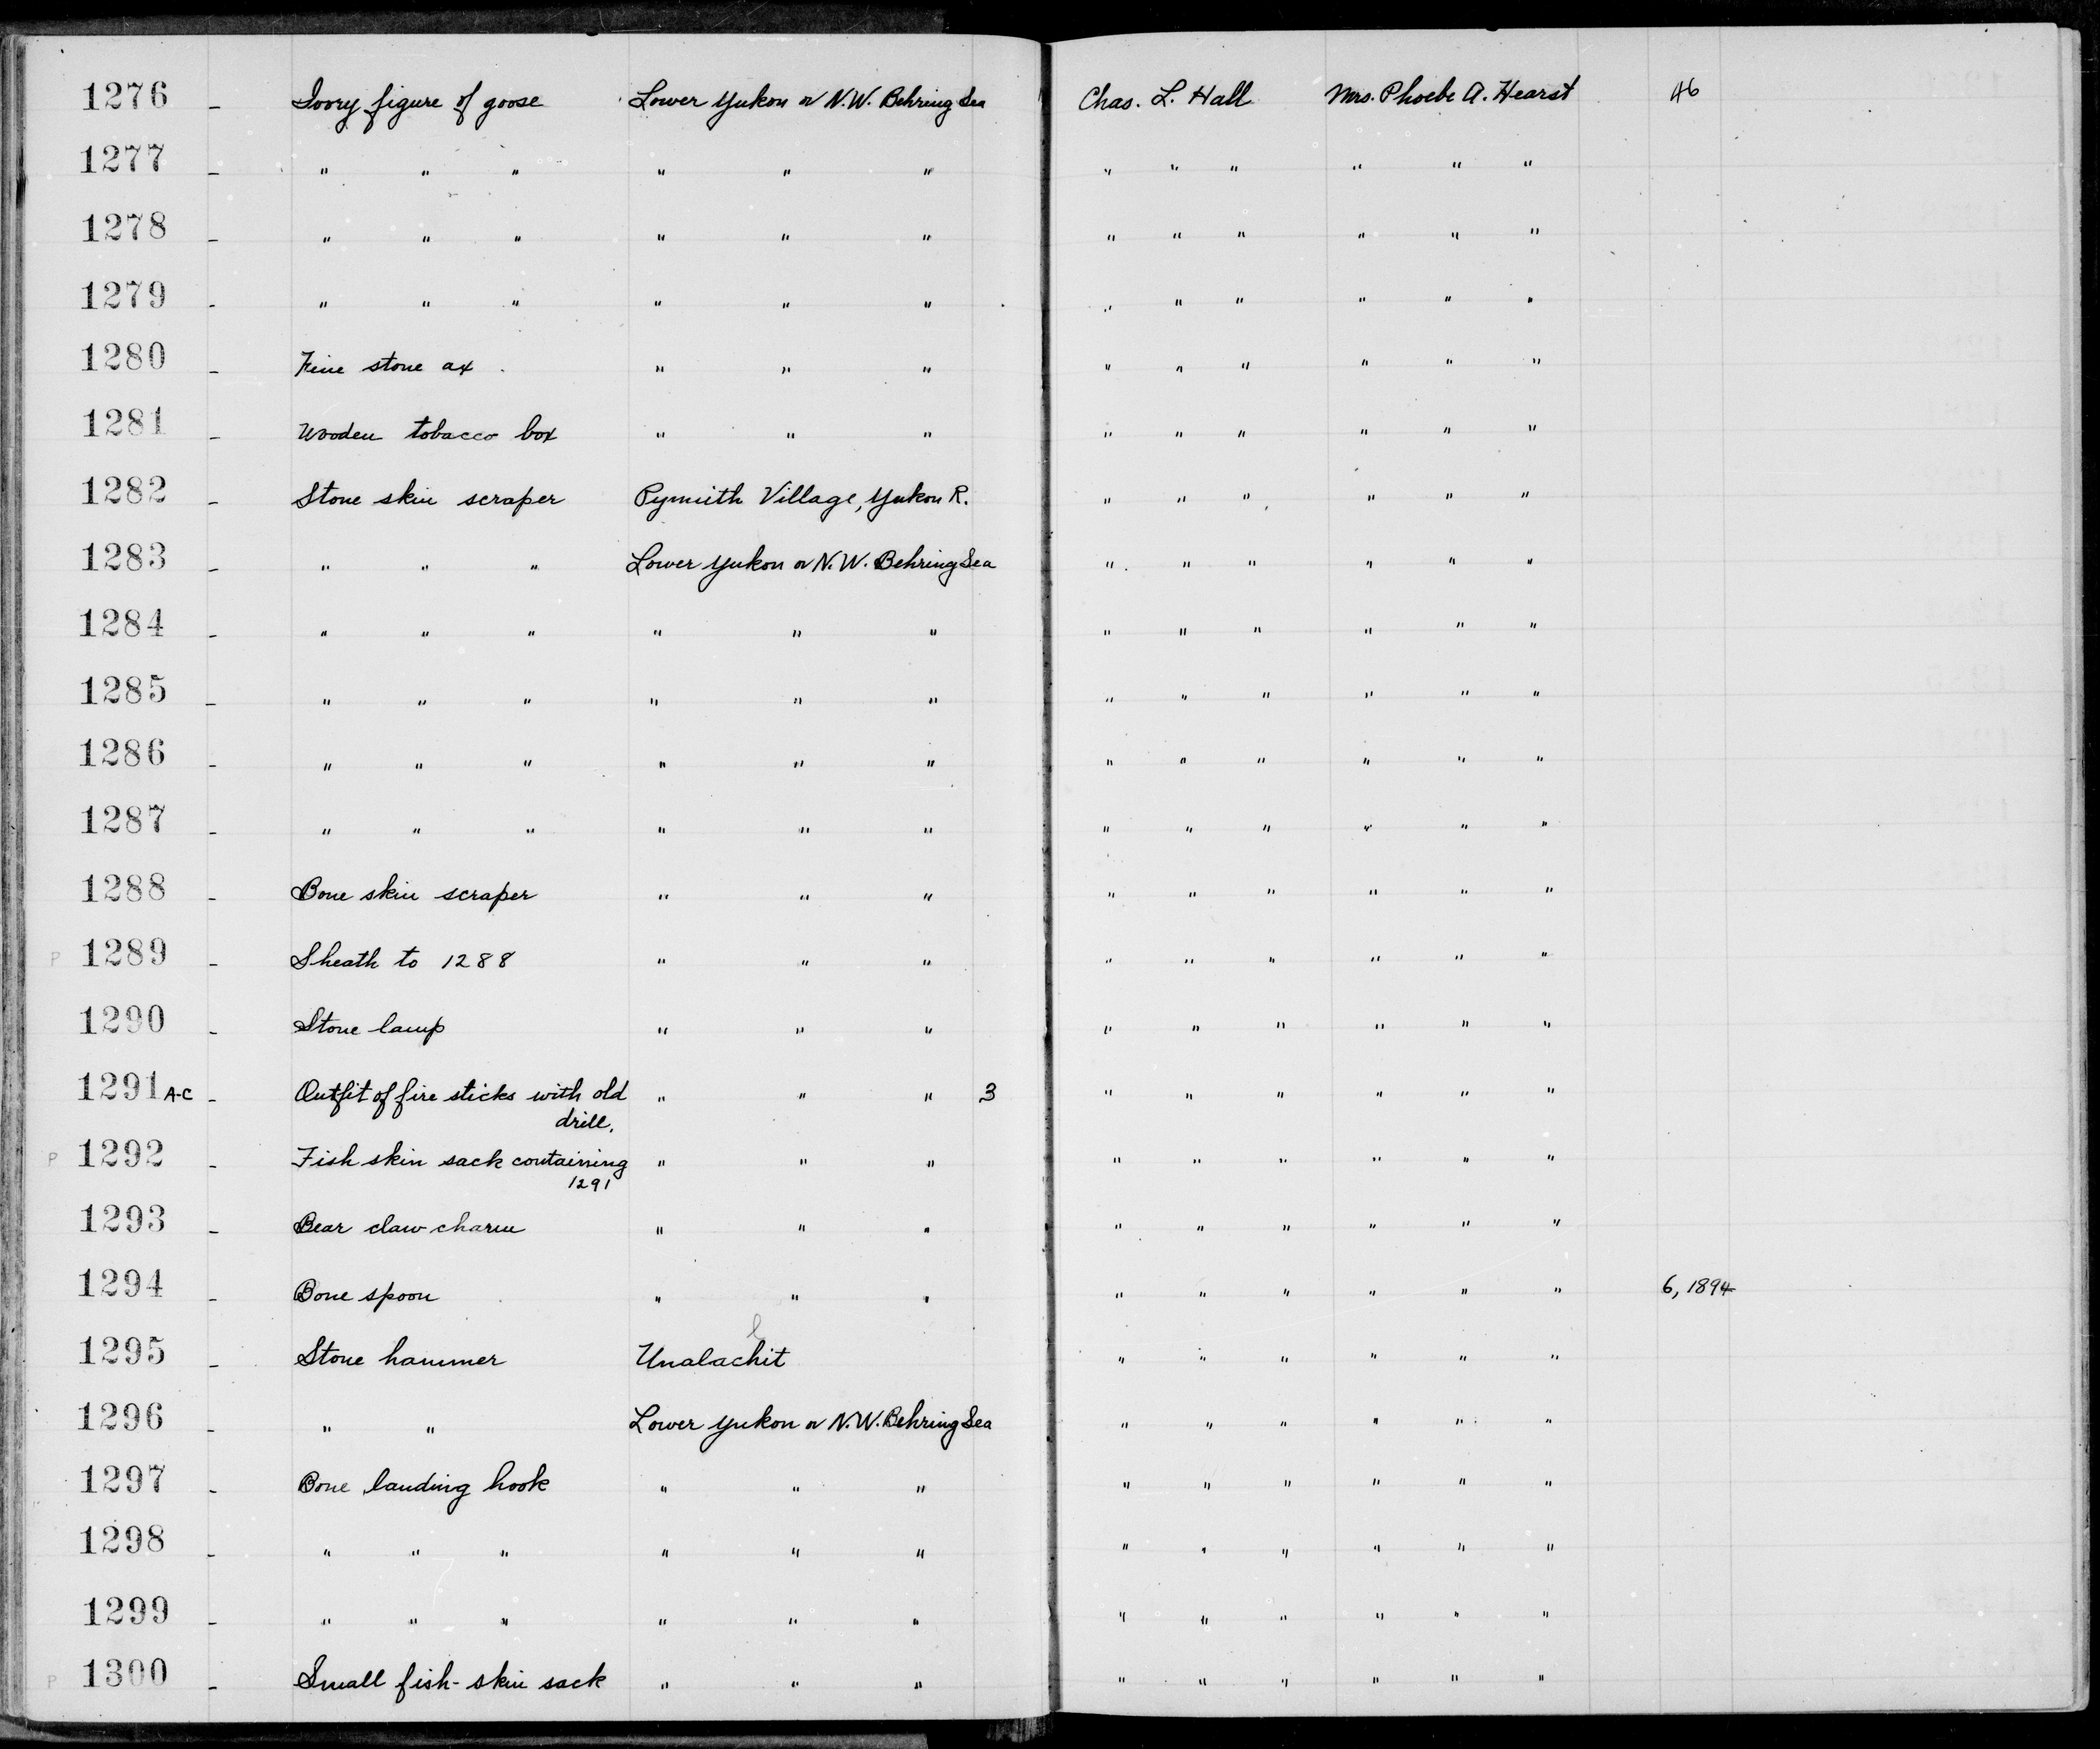 1276 - Ivory figure of goose Lower Yukon or N.W. Behring Sea Chas. L. Hall Mrs. Phoebe A. Hearst 46
1277 - " " " " " " " " " " " "
1278 - " " " " " " " " " " " "
1279 - " " " " " " " " " " " "
1280 - Fine stone ax " " " " " " " " "
1281 - Wooden tobacco box " " " " " " " " "
1282 - Stone skin scraper Pymith Village, Yukon R. " " " " " "
1283 - " " " Lower Yukon or N.W. Behring Sea " " " " " "
1284 - " " " " " " " " " " " "
1285 - " " " " " " " " " " " "
1286 - " " " " " " " " " " " "
1287 - " " " " " " " " " " " "
1288 - Bone skin scraper " " " " " " " " "
P 1289 - Sheath to 1288 " " " " " " " " "
1290 - Stone lamp " " " " " " " " "
1291 A-C - Outfit of fire sticks with old " " " 3 " " " " " "
drill.
P 1292 - Fish skin sack containing " " " " " " " " "
1291
1293 - Bear claw charm " " " " " " " " "
1294 - Bone spoon " " " " " " " " " 6, 1894
l
1295 - Stone hammer Unalachit " " " " " "
1296 - " " Lower Yukon or N.W. Behring Sea " " " " " "
1297 - Bone landing hook " " " " " " " " "
1298 - " " " " " " " " " " " "
1299 - " " " " " " " " " " " "
P 1300 - Small fish-skin sack " " " " " " " " "